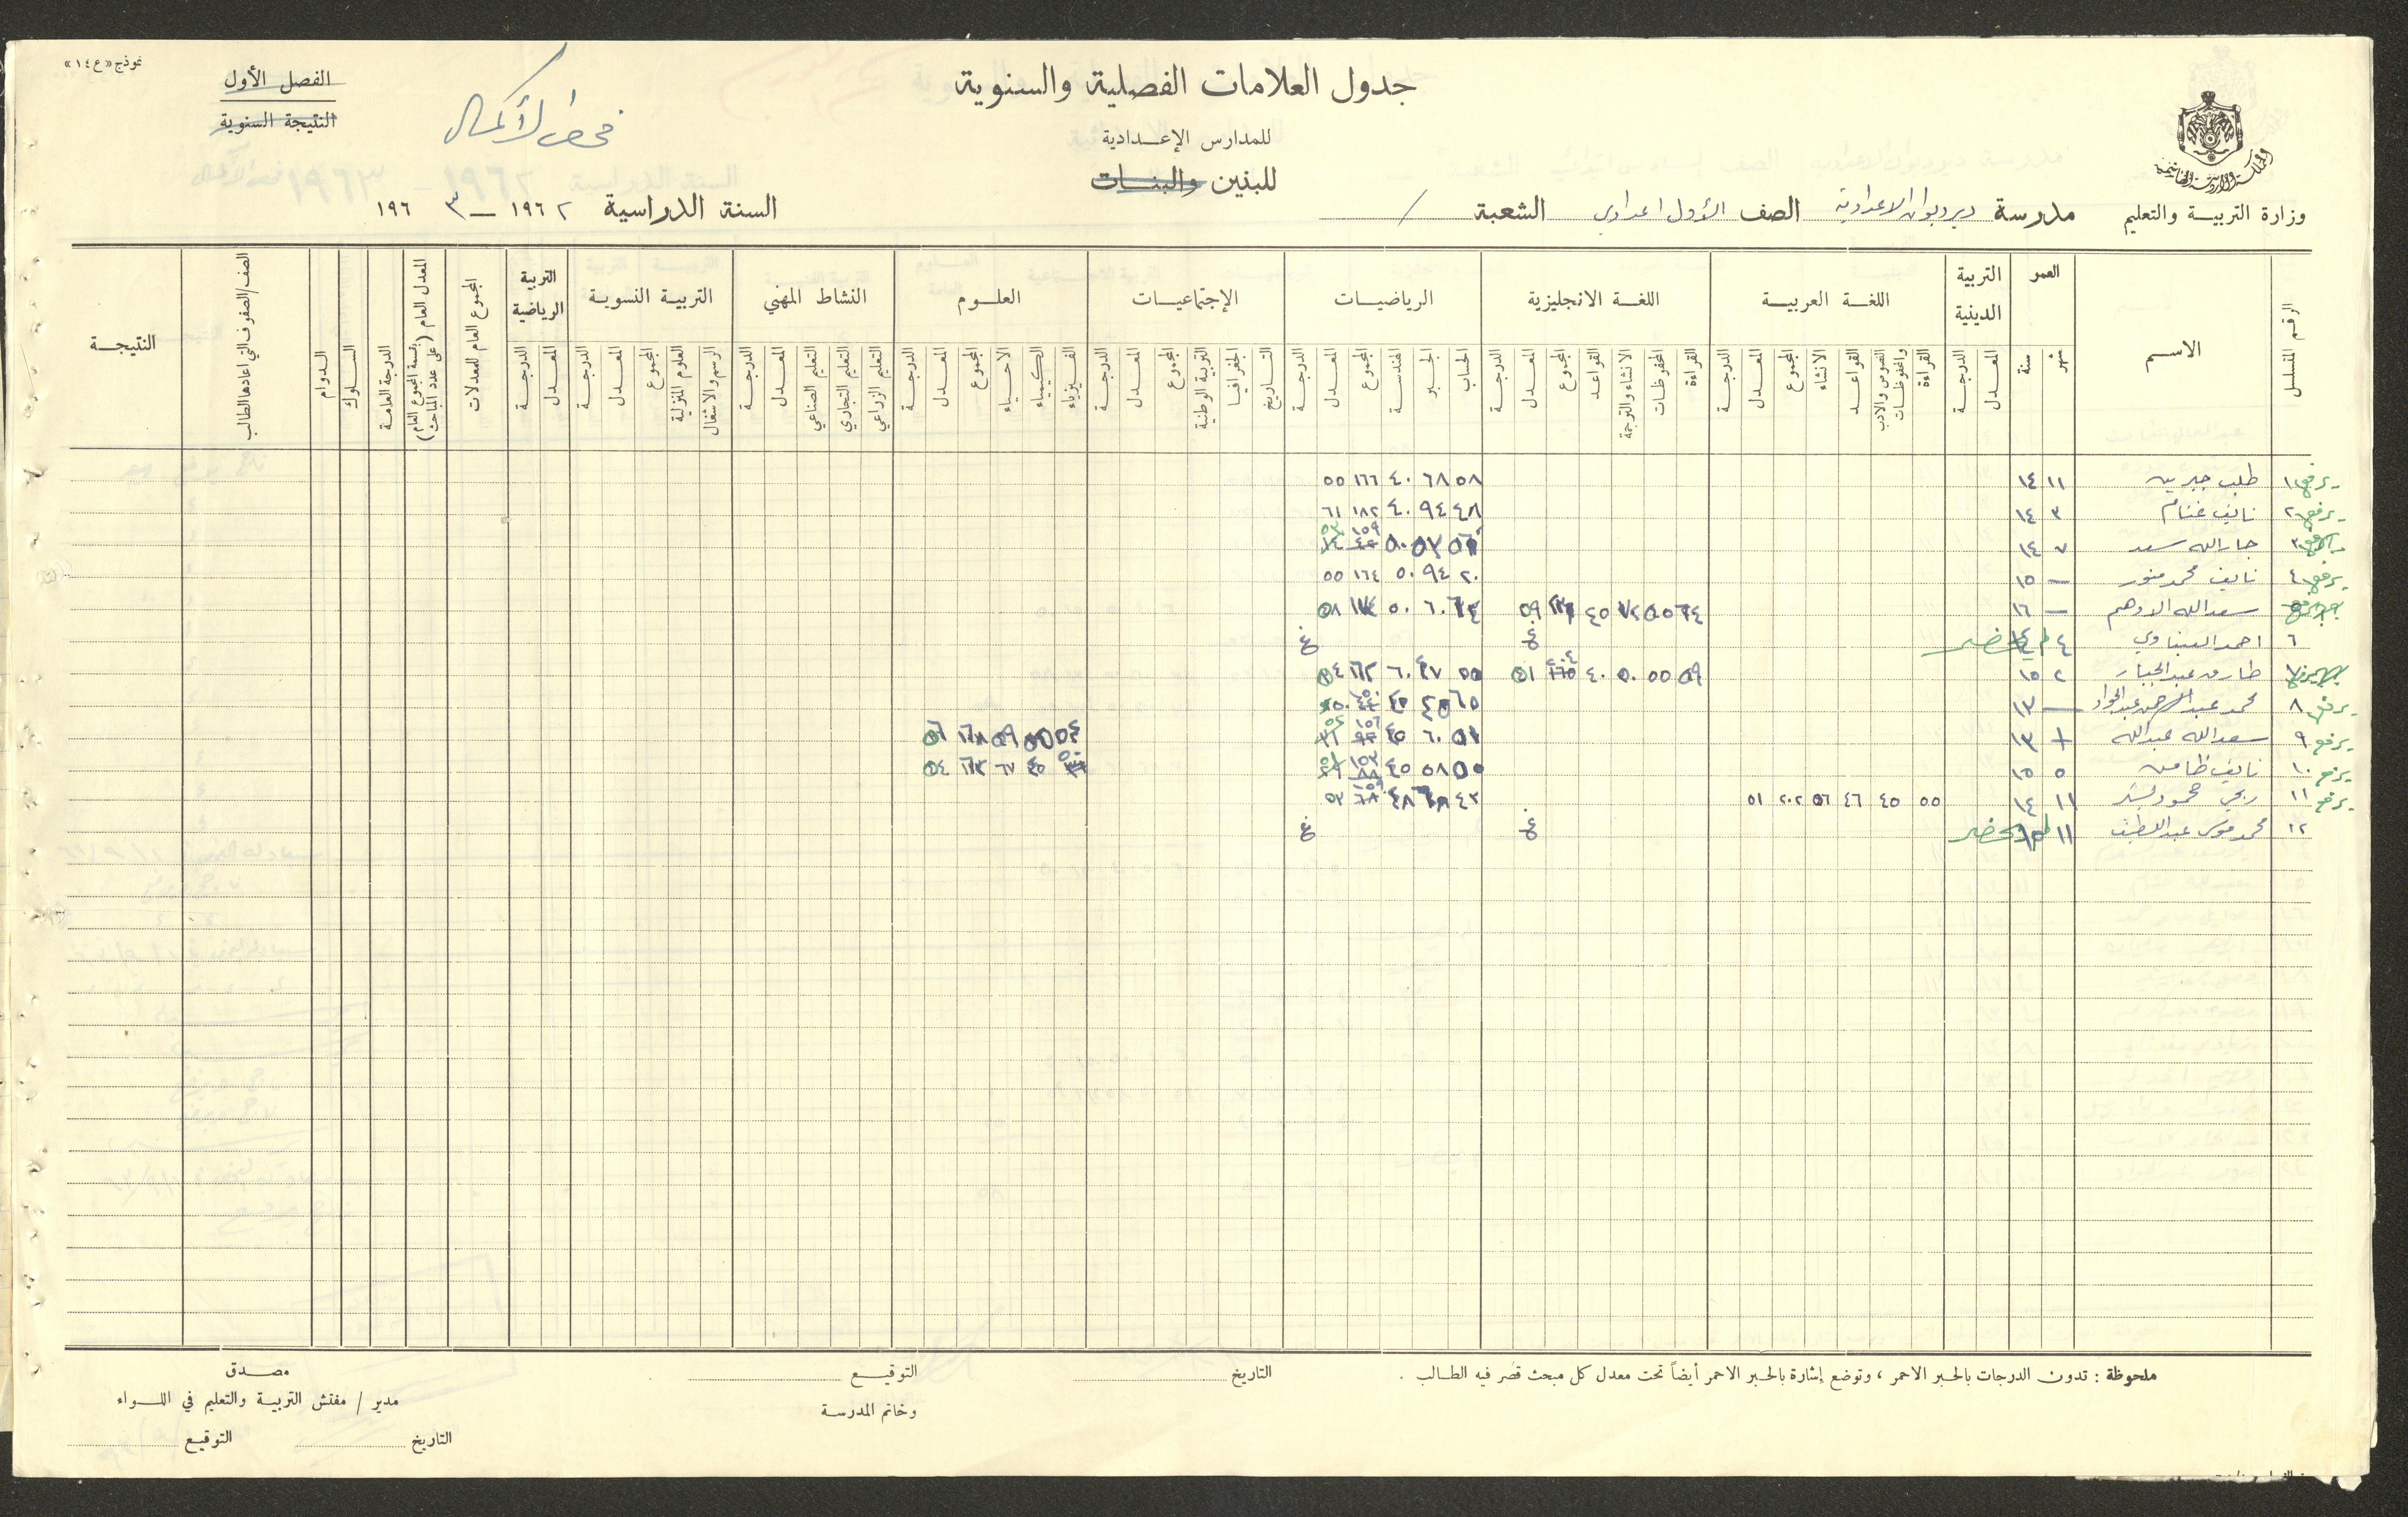 نموذج «ع ١٤»
جدول العلامات الفصلية والسنوية
الفصل الأول
النتيجة السنوية
فحص الأكمال
للمدارس الإعدادية
للبنين والبنات
المملكة الأردنية الهاشمية
وزارة التربية والتعليم
مدرسة ديرديوان الاعدادية الصف الأول اعدادي الشعبة /
السنة الدراسية ١٩٦٢ – ١٩٦٣
الرقم المتسلسل
الاسم
العمر
شهر سنة
التربية الدينية
المعدل الدرجة
اللغة العربية
القراءة والمحفوظات النصوص والادب القواعد الانشاء المجموع المعدل الدرجة
اللغة الانجليزية
القراءة المحفوظات الانشاء والترجمة القواعد المجموع المعدل الدرجة
الرياضيات
الحساب الجبر الهندسة المجموع المعدل الدرجة
الإجتماعيات
التاريخ الجغرافيا التربية الوطنية المجموع المعدل الدرجة
العلوم
الفيزياء الكيمياء الاحياء المجموع المعدل الدرجة
النشاط المهني
التعليم الزراعي التعليم التجاري التعليم الصناعي المعدل الدرجة
التربية النسوية
الرسم والاشغال العلوم المنزلية المجموع المعدل الدرجة
التربية الرياضية
المعدل الدرجة
المجموع العام للمعدلات
المعدل العام (قسمة المجموع العام على عدد المباحث)
الدرجة العامة
السلوك
الدوام
الصف/الصفوف التي اعادها الطالب
النتيجة
يرفع ١ طلب جبرين ١١ ١٤ ٥٨ ٦٨ ٤٠ ١٦٦ ٥٥
يرفع ٢ نايف غنام ٣ ١٤ ٤٨ ٩٤ ٤٠ ١٨٢ ٦١
يرفع ٣ جارالله سعد ٧ ١٤ ٥٠ ١٥٩ ٥٣
يرفع ٤ نايف محمد منور — ١٥ ٢٠ ٩٤ ٥٠ ١٦٤ ٥٥
سعدالله الادهم — ١٦ ٤٥ ٥٩ ٦٠ ٥٠ ٥٨
٦ احمد العيناوي ٤ لم يحضر غ غ
طارق عبدالجبار ٢ ١٥ ٥٩ ٥٥ ٥٠ ٤٠ ٢٠٤ ٥١ ٥٥ ٤٧ ٦٠ ١٦٢ ٥٤
يرفع ٨ محمد عبدالرحمن عبدالجواد — ١٣ ٦٥ ٤٥ ١٥٠ ٥٠
يرفع ٩ سعدالله عبدالله ١٣ ٥١ ٦٠ ٤٥ ١٥٦ ٥٢ ٥٤ ٥٥ ٥٩ ١٦٨ ٥٦
يرفع ١٠ نايف ظامن ٥ ١٥ ٥٠ ٥٨ ٤٥ ١٥٣ ٥١ ٥٠ ٤٥ ٦٧ ١٦٢ ٥٤
يرفع ١١ ربحي محمود بشر ١١ ١٤ ٥٥ ٤٥ ٤٦ ٥٦ ٢٠٢ ٥١ ٤٣ ٦٨ ٤٨ ٥٣
١٢ محمد موسى عبداللطيف ١١ لم يحضر غ غ
ملحوظة : تدون الدرجات بالحبر الاحمر ، وتوضع إشارة بالحبر الاحمر أيضاً تحت معدل كل مبحث قصر فيه الطالب .
التاريخ
التوقيع
وخاتم المدرسة
مصدق
مدير / مفتش التربية والتعليم في اللواء
التاريخ التوقيع